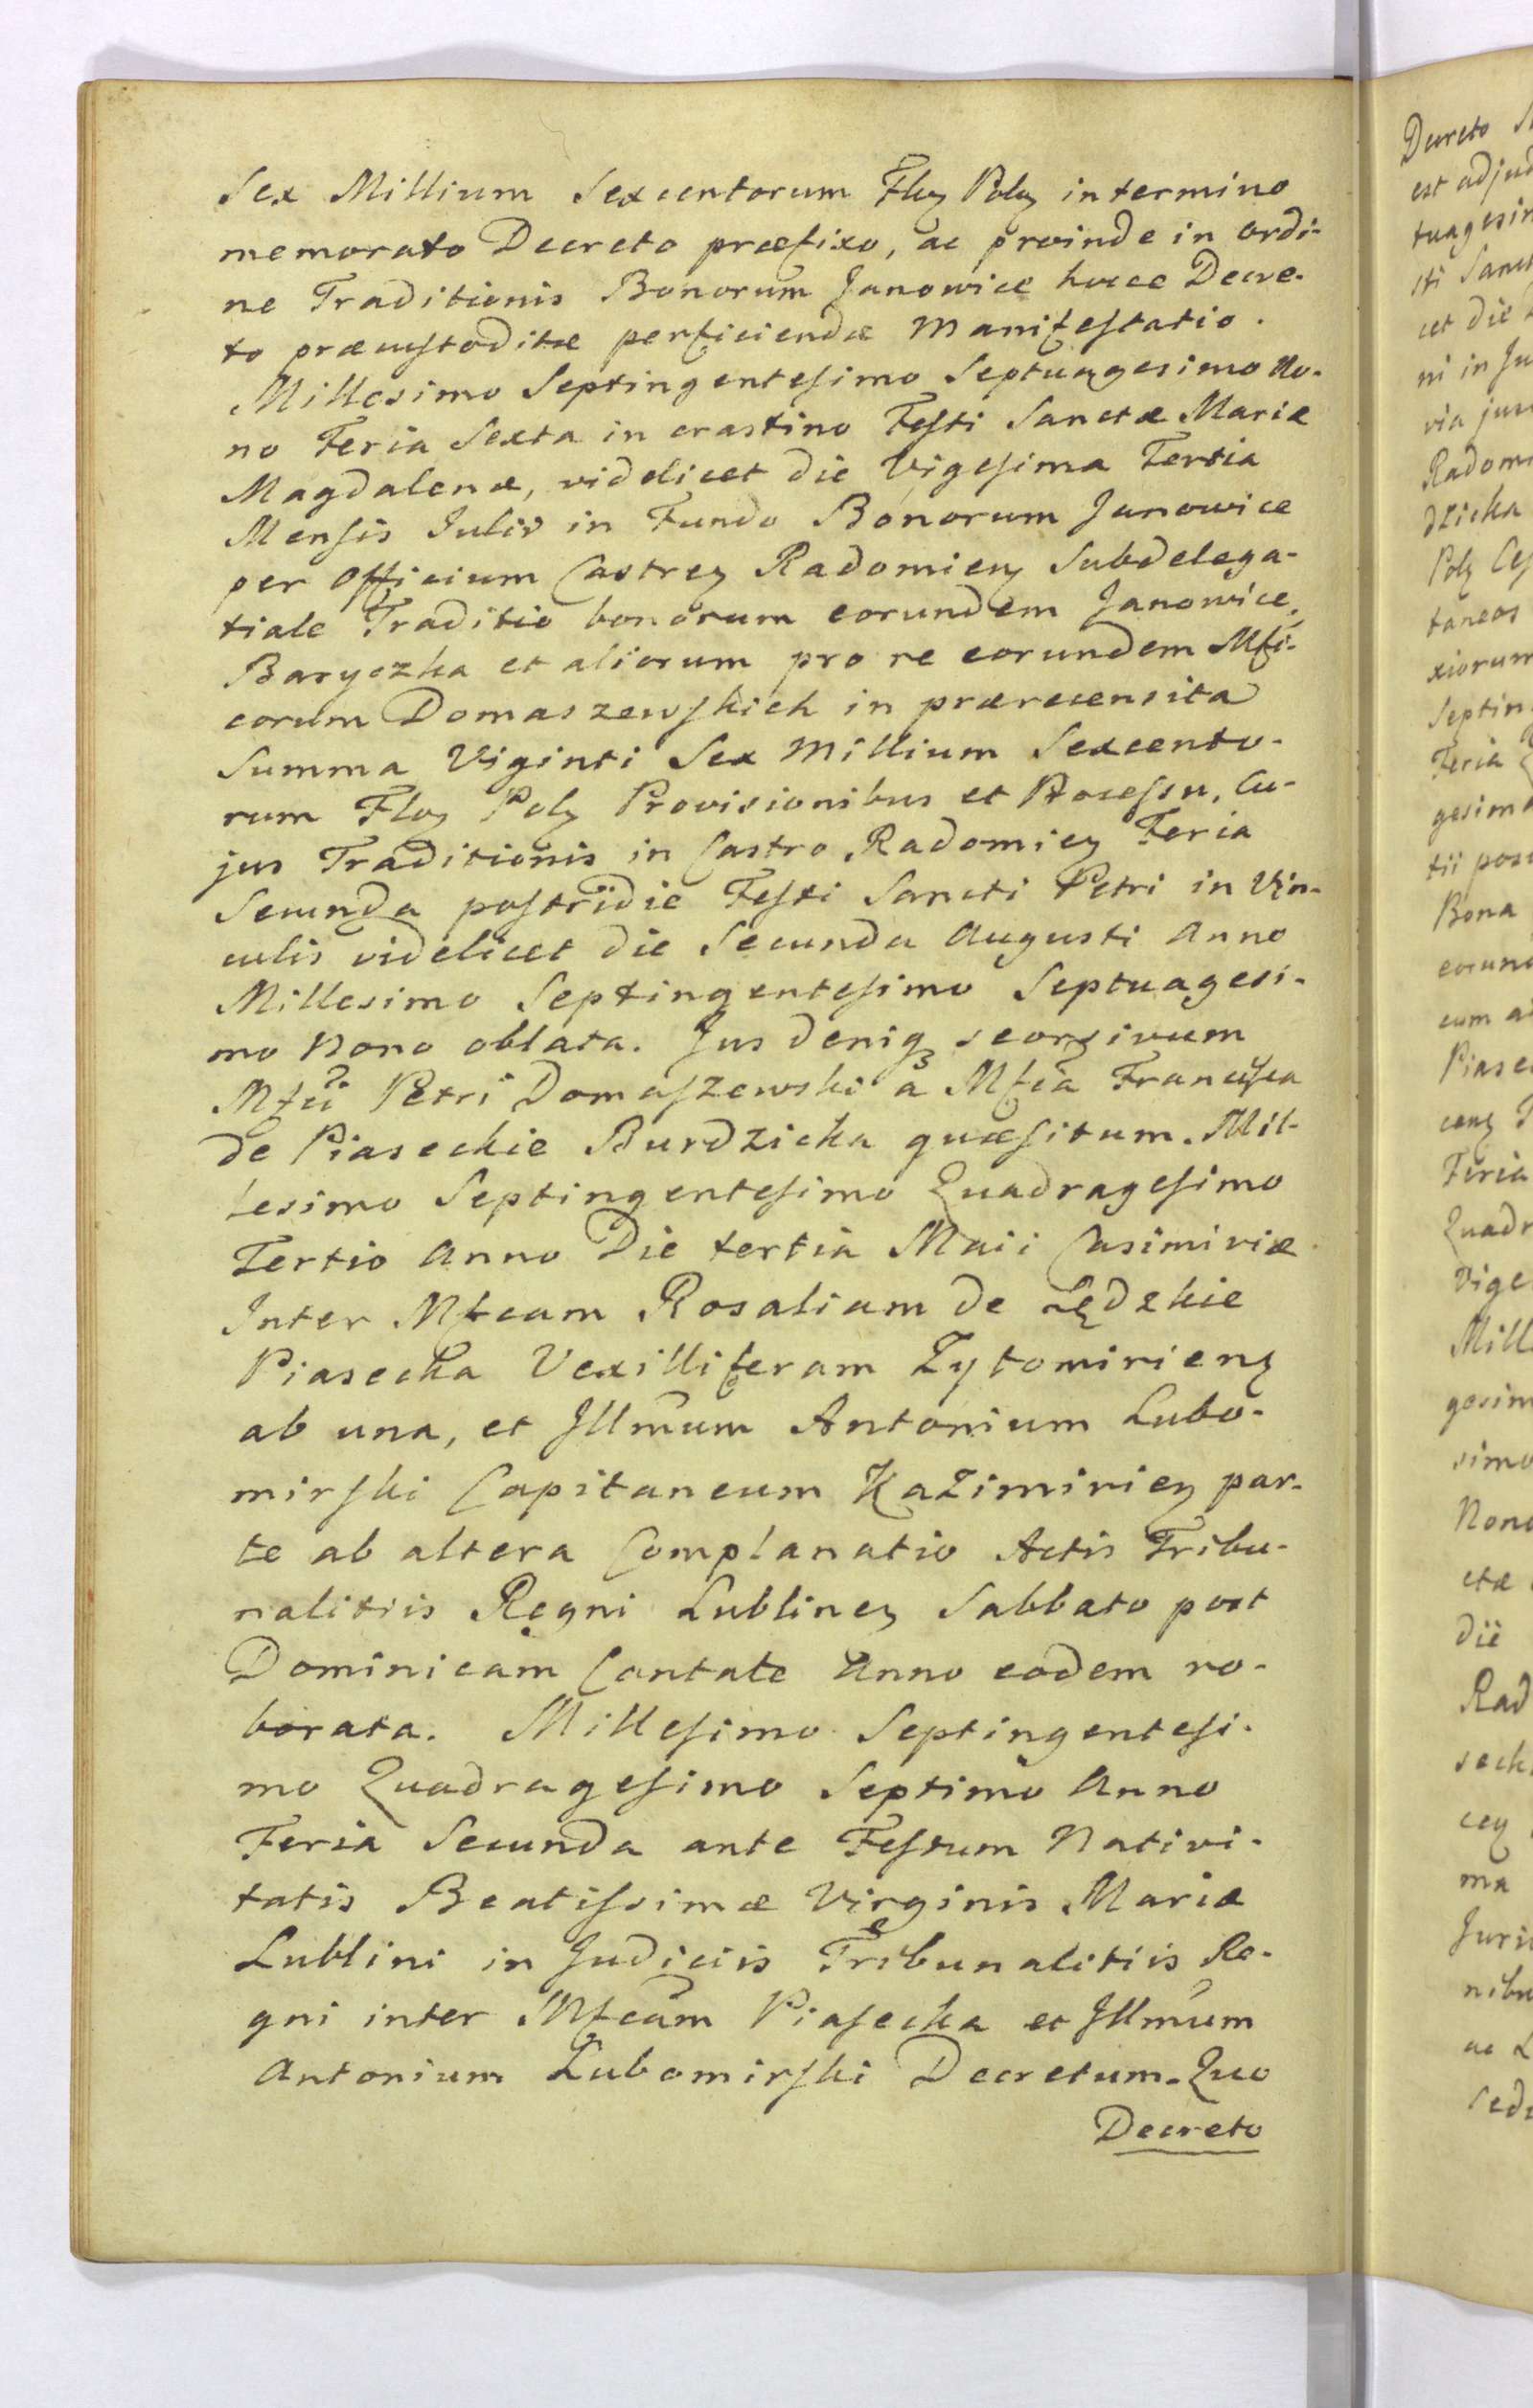 Sex Millium Sexcentorum Floꝝ Polꝝ in termino
memorato Decreto præfixo, ac proinde in ordi-
ne Traditionis Bonorum Janowice hocce Decre-
to præcustoditæ perficiendæ Manifestatio.
Millesimo Septingentesimo Septuagesimo No-
no Feria Sexta in crastino Festi Sanctæ Mariæ
Magdalenæ, videlicet die Vigesima Tertia
Mensis Julii in Fundo Bonorum Janowice
per Officium Castreꝝ Radomieꝝ Subdelega-
tiale Traditio bonorum eorundem Janowice,
Baryczka et aliorum pro re eorundem Mfi-
corum Domaszewskich in præcensita
Summa Viginti Sex Millium Sexcento-
rum Floꝝ Polꝝ Provisionibus et Processu, Cu-
jus Traditionis in Castro Radomieꝝ Feria
Secunda postridie Festi Sancti Petri in Vin-
culis videlicet die Secunda Augusti Anno
Millesimo Septingentesimo Septuagesi-
mo Nono oblata. Jus deniqꝫ seorsivum
Mfci Petri Domaszewski à Mfca Francisca
de Piaseckie Burdzicka quæsitum. Mil-
lesimo Septingentesimo Quadragesimo
Tertio Anno Die tertia Maii Casimiriæ
Inter Mfcam Rosaliam de Lędzkie
Piasecka Vexilliferam Zytomirienꝝ
ab una, et Jllmum Antonium Lubo-
mirski Capitaneum Kazimirieꝝ par-
te ab altera Complanatio Actis Tribu-
nalitiis Regni Lublineꝝ Sabbato post
Dominicam Cantate Anno eodem ro-
borata. Millesimo Septingentesi-
mo Quadragesimo Septimo Anno
Feria Secunda ante Festum Nativi-
tatis Beatissimæ Virginis Mariæ
Lublini in Judiciis Tribunalitiis Re-
gni inter Mfcam Piasecka et Jllmum
Antonium Lubomirski Decretum. Quo
Decreto
Decreto
est adjud
tuagesim
sti Sanct
cet die
ni in Ju
via jur
Radom
dzicka
Polꝝ
taneos
xiorum
Septin
Feria
gesima
tii post
Bona
eorund
cum a
Piase
cenꝝ
Feria
Quadr
Vige
Mill
gesim
simo
Nono
ctæ
dii
Rad
seck
ceꝝ
ma
Juri
nibu
ac
sedi